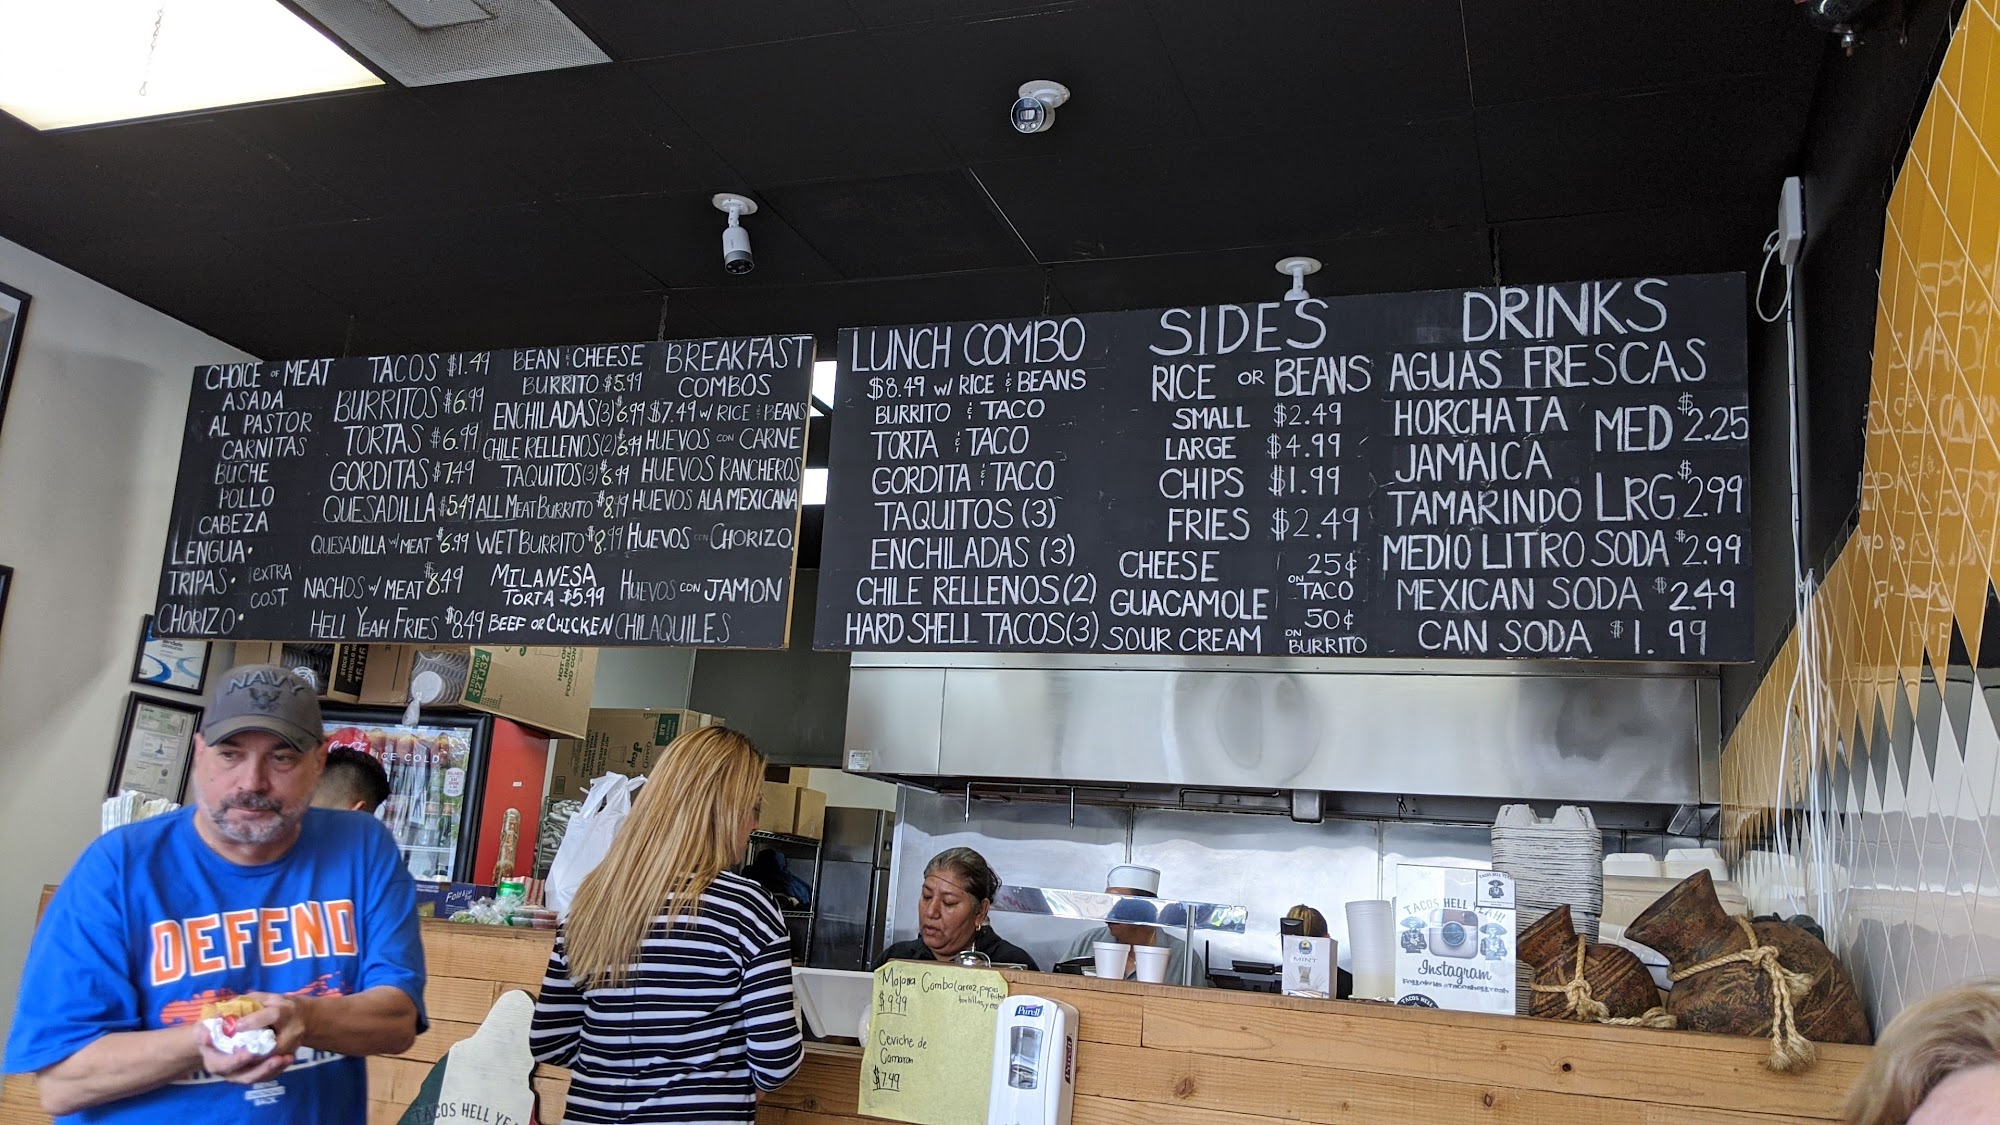 CHOICE OF MEAT
ASADA
AL PASTOR
CARNITAS
BUCHE
POLLO
CABEZA
LENGUA•
TRIPAS•
CHORIZO•
EXTRA
COST
TACOS $1.49
BURRITOS $6.99
TORTAS $6.99
GORDITAS $7.49
QUESADILLA $5.49
QUESADILLA W/ MEAT $6.99
NACHOS W/ MEAT $8.49
HELL YEAH FRIES $8.49
BEAN & CHEESE
BURRITO $5.99
ENCHILADAS(3) $6.99
CHILE RELLENOS(2) $6.99
TAQUITOS(3) $6.99
ALL MEAT BURRITO $8.49
WET BURRITO $8.99
MILANESA
TORTA $5.99
BEEF OR CHICKEN
BREAKFAST
COMBOS
$7.49 W/ RICE & BEANS
HUEVOS CON CARNE
HUEVOS RANCHEROS
HUEVOS ALA MEXICANA
HUEVOS CON CHORIZO
HUEVOS CON JAMON
CHILAQUILES
LUNCH COMBO
$8.49 W/ RICE & BEANS
BURRITO & TACO
TORTA & TACO
GORDITA & TACO
TAQUITOS (3)
ENCHILADAS (3)
CHILE RELLENOS (2)
HARD SHELL TACOS (3)
SIDES
RICE OR BEANS
SMALL $2.49
LARGE $4.99
CHIPS $1.99
FRIES $2.49
CHEESE
GUACAMOLE
SOUR CREAM
25¢
ON TACO
50¢
ON BURRITO
DRINKS
AGUAS FRESCAS
HORCHATA
JAMAICA
TAMARINDO
MED $2.25
LRG $2.99
MEDIO LITRO SODA $2.99
MEXICAN SODA $2.49
CAN SODA $1.99
NAVY
DEFEND
ICE COLD
TACOS HELL YE
Majarra Combo (arroz, papas
fritas
tortillas, yea
$9.99
Ceviche de
Camaron
$7.49
Purell
MINT
TACOS HELL YEAH!
Instagram
TACOS HELL